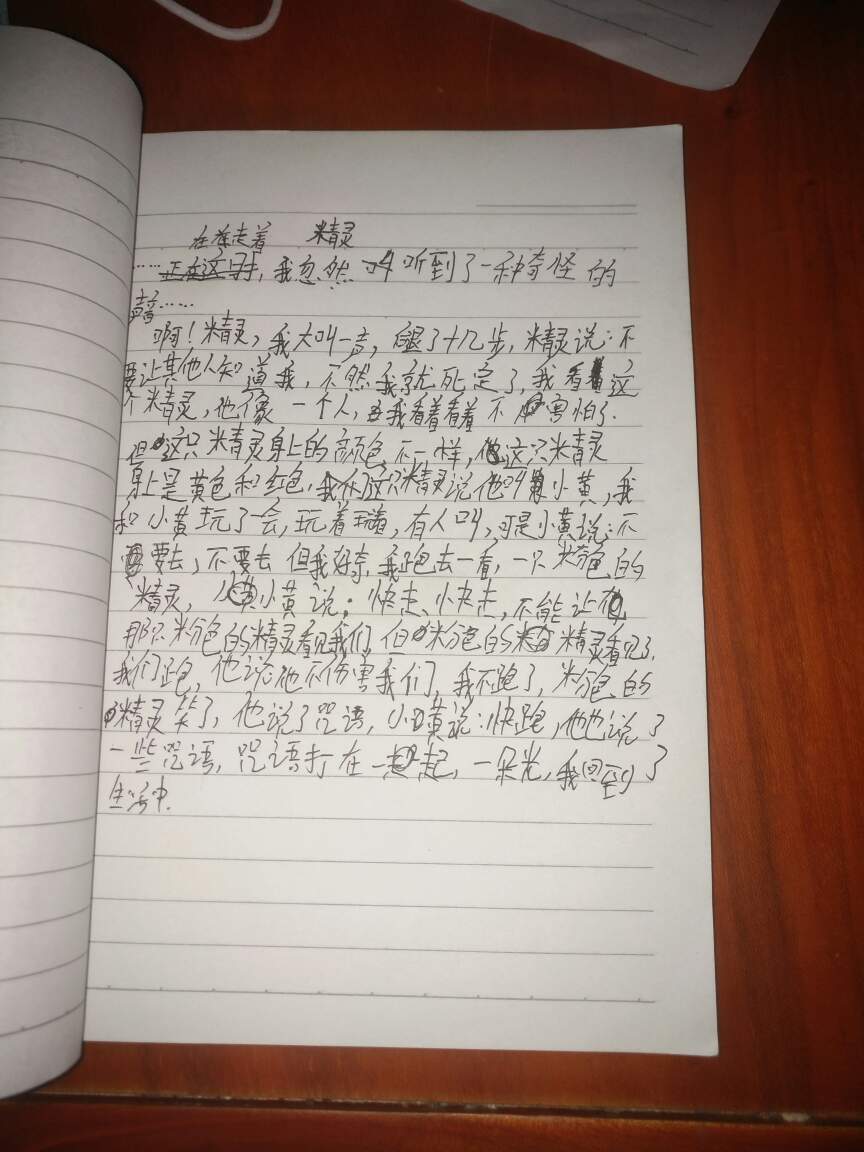 在走着 精灵
……正在这时，我忽然听到了一种奇怪的
声音……
啊！精灵，我大叫一声，腿了十几步，精灵说：不
要让其他人知道我，不然我就死定了，我看着这
个精灵，他像一个人，我看着看着不害怕了.
但这只精灵身上的颜色不一样，这只精灵
身上是黄色和红色，我们这只精灵说他叫小黄，我
和小黄玩了一会，玩着玩着，有人叫，可是小黄说：不
要去，不要去但我好奇，我跑去一看，一只粉色的
精灵，小黄说：快走、快走，不能让
那只粉色的精灵看见我们，但粉色的精灵看见了，
我们跑，他说他不伤害我们，我不跑了，粉色的
精灵笑了，他说了咒语，小黄说：快跑，他也说了
一些咒语，咒语打在一起，一朵光，我回到了
生活中.